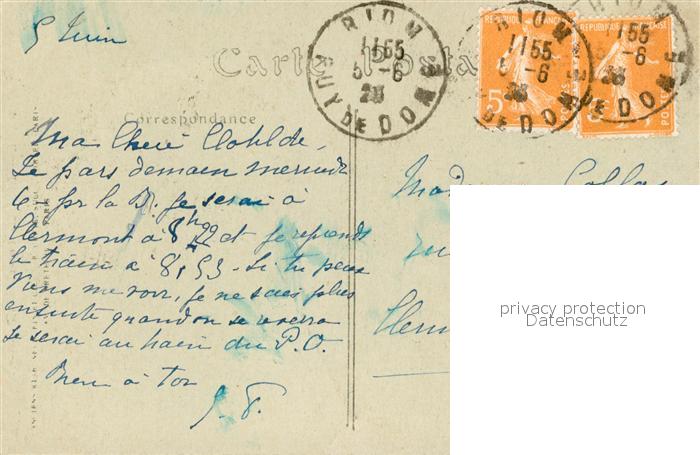 5 Juin
Carte Posta
Correspondance
RIOM
1155
5-6
28
PUY DE DOME
RIOM
1155
5-6
28
DE DOME
1155
-6
28
DE DOME
REPUBLIQUE FRANÇAISE
5
POSTES
REPUBLIQUE FRANÇAISE
Ma Chère Clotilde,
Je pars demain mercredi
6 pr la B. Je serai à
Clermont à 8h22 et je reprends
le train à 8,53. Si tu peux
venir me voir, je ne sais plus
ensuite quand on se verra
Je serai au train du P.O.
Bien à toi
J. F.
Collas
Clerm
privacy protection
Datenschutz